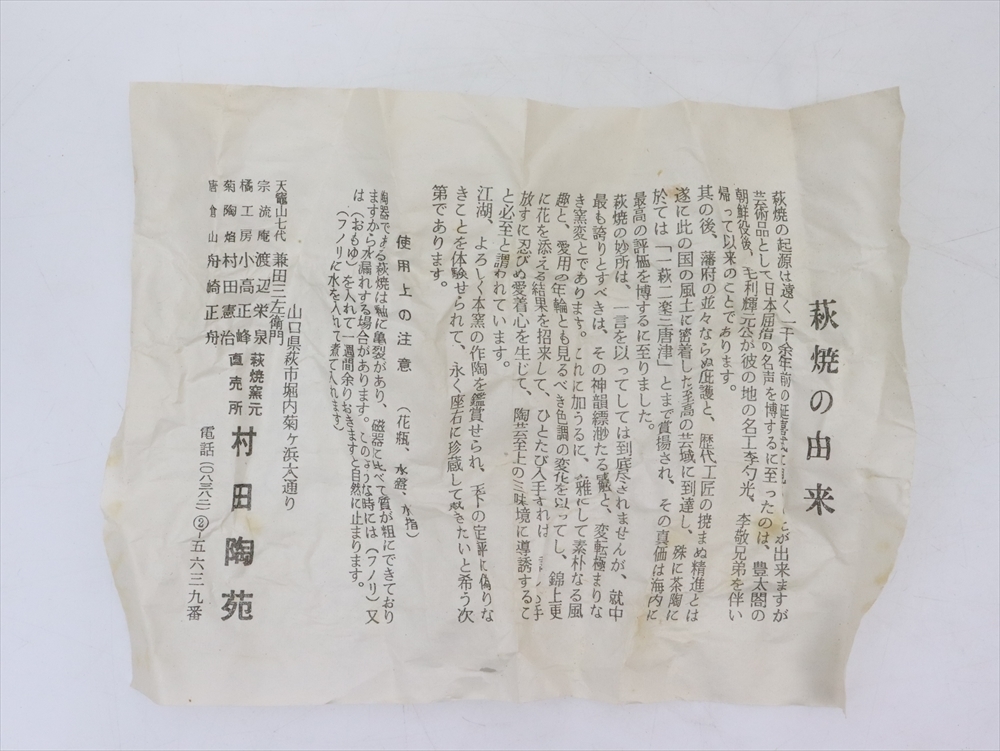 萩焼の由来
萩焼の起源は遠く一千余年前の延喜式に が出来ますが
芸術品として日本屈指の名声を博するに至ったのは、豊太閤の
朝鮮役後、毛利輝元公が彼の地の名工李勺光、李敬兄弟を伴い
帰って以来のことであります。
其の後、藩府の並々ならぬ庇護と、歴代工匠の撓まぬ精進とは
遂に此の国の風土に密着した至高の芸域に到達し、殊に茶陶に
於ては「一萩二楽三唐津」とまで賞揚され、その真価は海内に
最高の評価を博するに至りました。
萩焼の妙所は、一言を以ってしては到底尽されませんが、就中
最も誇りとすべきは、その神韻縹渺たる感と、変転極まりな
き窯変とであります。これに加うるに、雅にして素朴なる風
趣と、愛用の年輪とも見るべき色調の変化を以ってし、錦上更
に花を添える結果を招来して、ひとたび入手すれば 手
放すに忍びぬ愛着心を生じて、陶芸至上の三昧境に導誘するこ
と必至と謂われています。
江湖、よろしく本窯の作陶を鑑賞せられ、天下の定評に偽りな
きことを体験せられて、永く座右に珍蔵して戴きたいと希う次
第であります。
使用上の注意 (花瓶、水盤、水指)
陶器である萩焼は釉に亀裂があり、磁器に比べて質が粗にできており
ますから水漏れする場合があります。このような時には(フノリ)又
は(おもゆ)を入れて一週間余りおきますと自然に止まります。
(フノリに水を入れて煮て入れます)
山口県萩市堀内菊ヶ浜大通り
天竈山七代 兼田三左衛門
宗流庵 渡辺栄泉
橘工房 小高正峰
菊陶焰 村田憲治
唐倉山 舟崎正舟
萩焼窯元
直売所
村田陶苑
電話(〇八三八二)②-五六三九番